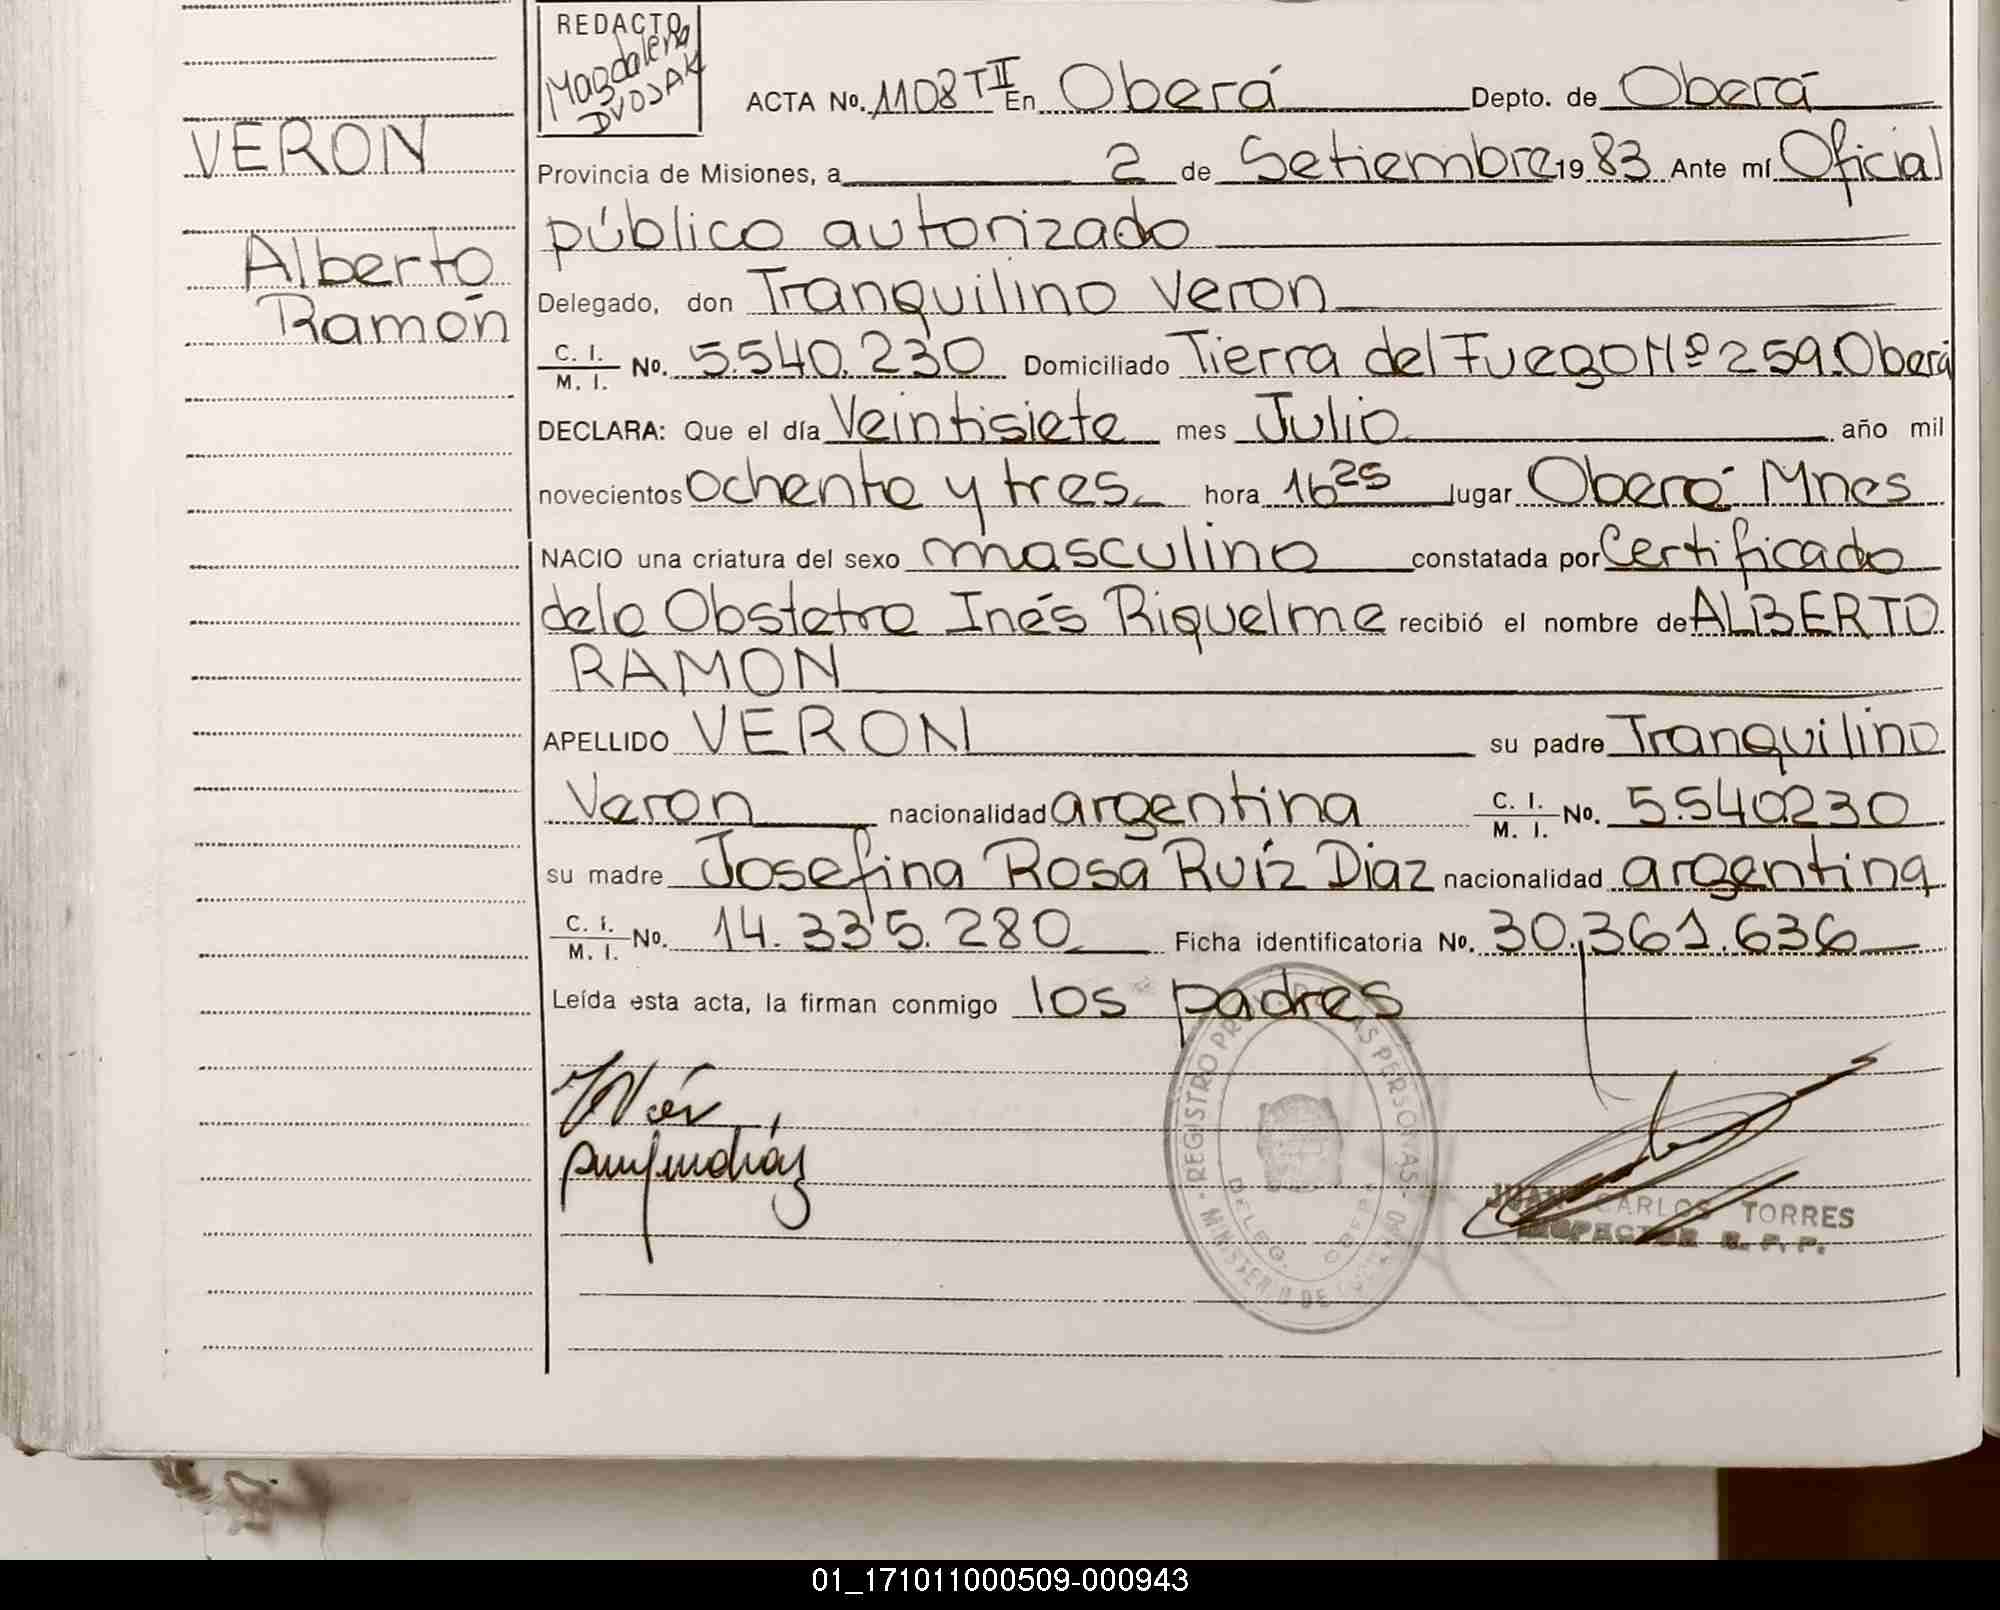 REDACTO
Magdalena
DVOJAK
ACTA No. 1108 T II En Oberá Depto. de Oberá
VERON
Provincia de Misiones, a 2 de Setiembre 19 83 Ante mí Oficial
público autorizado
Alberto
Ramón
Delegado, don Tranquilino Veron
C. I. / M. I. No. 5.540.230 Domiciliado Tierra del Fuego Nº 259. Oberá
DECLARA: Que el día Veintisiete mes Julio año mil
novecientos ochenta y tres hora 16 25 lugar Oberá Mnes
NACIO una criatura del sexo masculino constatada por Certificado
dela Obstetra Inés Riquelme recibió el nombre de ALBERTO
RAMON
APELLIDO VERON su padre Tranquilino
Veron nacionalidad argentina C. I. / M. I. No. 5.540230
su madre Josefina Rosa Ruíz Diaz nacionalidad argentina
C. I. / M. I. No. 14.335.280 Ficha identificatoria No. 30.361.636
Leída esta acta, la firman conmigo los padres
REGISTRO PROV. DE LAS PERSONAS
MINISTERIO DE GOBIERNO
DELEG. OBERA
JUAN CARLOS TORRES
INSPECTOR R. P. P.
01_171011000509-000943